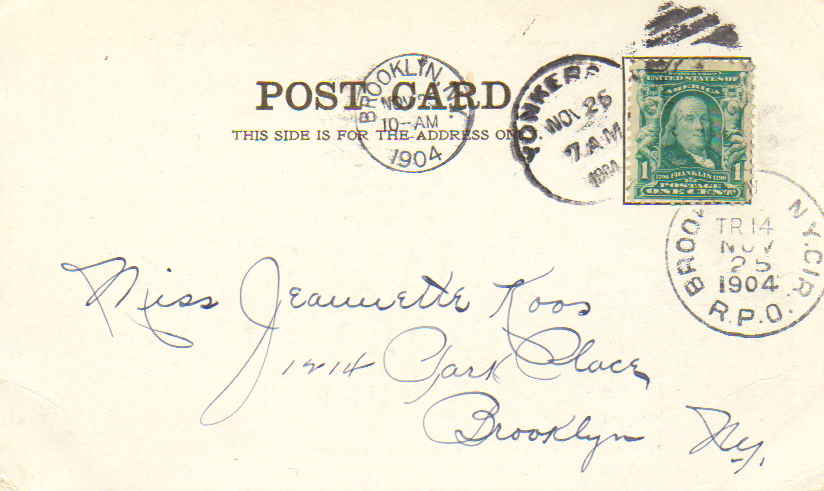 POST CARD
THIS SIDE IS FOR THE ADDRESS ONLY
BROOKLYN, N.Y.
NOV
10-AM
1904
YONKERS
NOV 25
7 A.M
1904
UNITED STATES OF
AMERICA
1 FRANKLIN 1
POSTAGE
ONE CENT
BROOKLYN N.Y. CIR
TR 14
NOV
25
1904
R.P.O.
Miss Jeannette Koos
1214 Park Place
Brooklyn Ny.